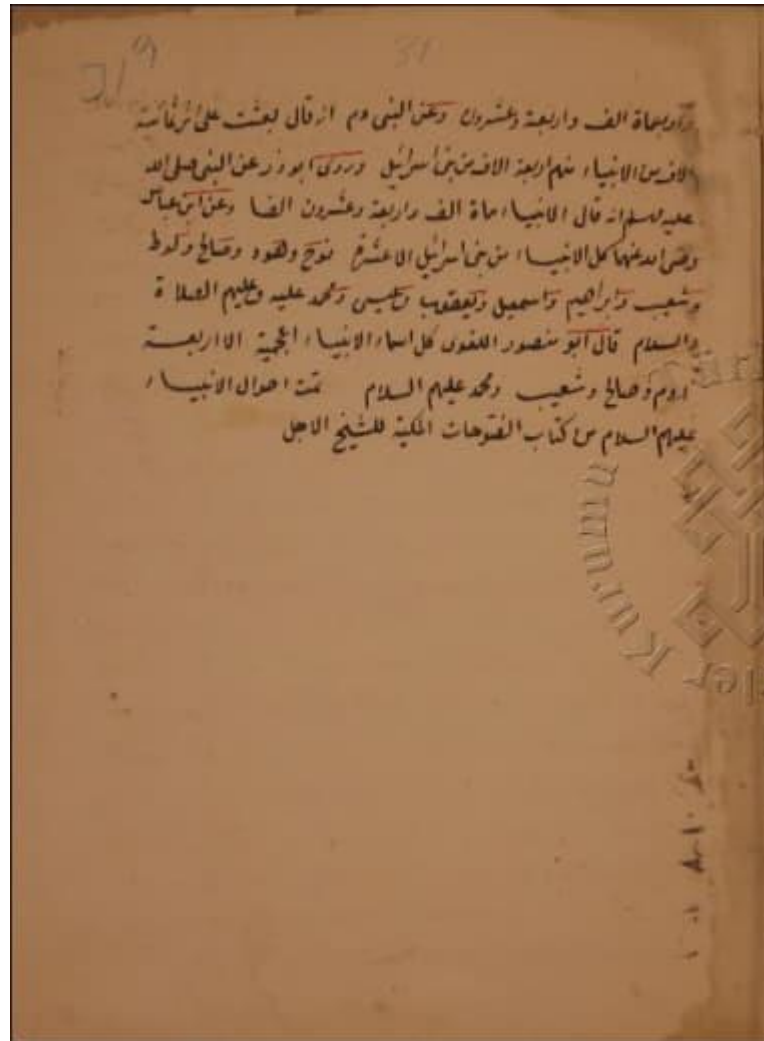 31
واربعماة الف واربعة وعشرون وعن النبى وم انه قال بعثت على اثر ثمانية
الاف من الانبياء منهم اربعة الاف من بنى اسرائيل وروى ابو ذر عن النبى صلى الله
عليه وسلم انه قال الانبياء ماة الف واربعة وعشرون الفا وعن ابن عباس
رضى الله عنهما كل الانبياء من بنى اسرائيل الا عشرة نوح وهود وصالح ولوط
وشعيب وابراهيم واسمعيل ويعقوب وعيسى ومحمد عليه وعليهم الصلاة
والسلام قال ابو منصور اللغوى كل اسماء الانبياء اعجمية الا اربعة
ادم وصالح وشعيب ومحمد عليهم السلام تمت احوال الانبياء
عليهم السلام من كتاب الفتوحات المكية للشيخ الاجل